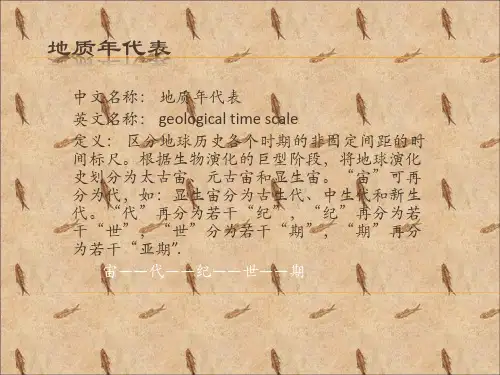 地质年代表
中文名称： 地质年代表
英文名称： geological time scale
定义： 区分地球历史各个时期的非固定间距的时
间标尺。根据生物演化的巨型阶段，将地球演化
史划分为太古宙、元古宙和显生宙。“宙”可再
分为代，如：显生宙分为古生代、中生代和新生
代。“代”再分为若干“纪”，“纪”再分为若
干“世”，“世”分为若干“期”，“期”再分
为若干“亚期”.
宙——代——纪——世——期